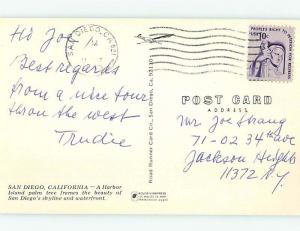 Hi Joe
Best regards
from a nice tour
thron the west
Trudie
SAN DIEGO, CALIFORNIA — A Harbor
Island palm tree frames the beauty of
San Diego's skyline and waterfront.
SAN DIEGO, CA
Road Runner Card Co., San Diego, Ca. 92110
PEOPLE'S RIGHT TO PETITION FOR REDRESS
USA 10c
POST CARD
ADDRESS
Mr Joe Strang
71-02 34th ave
Jackson Heights
11372 N.Y.